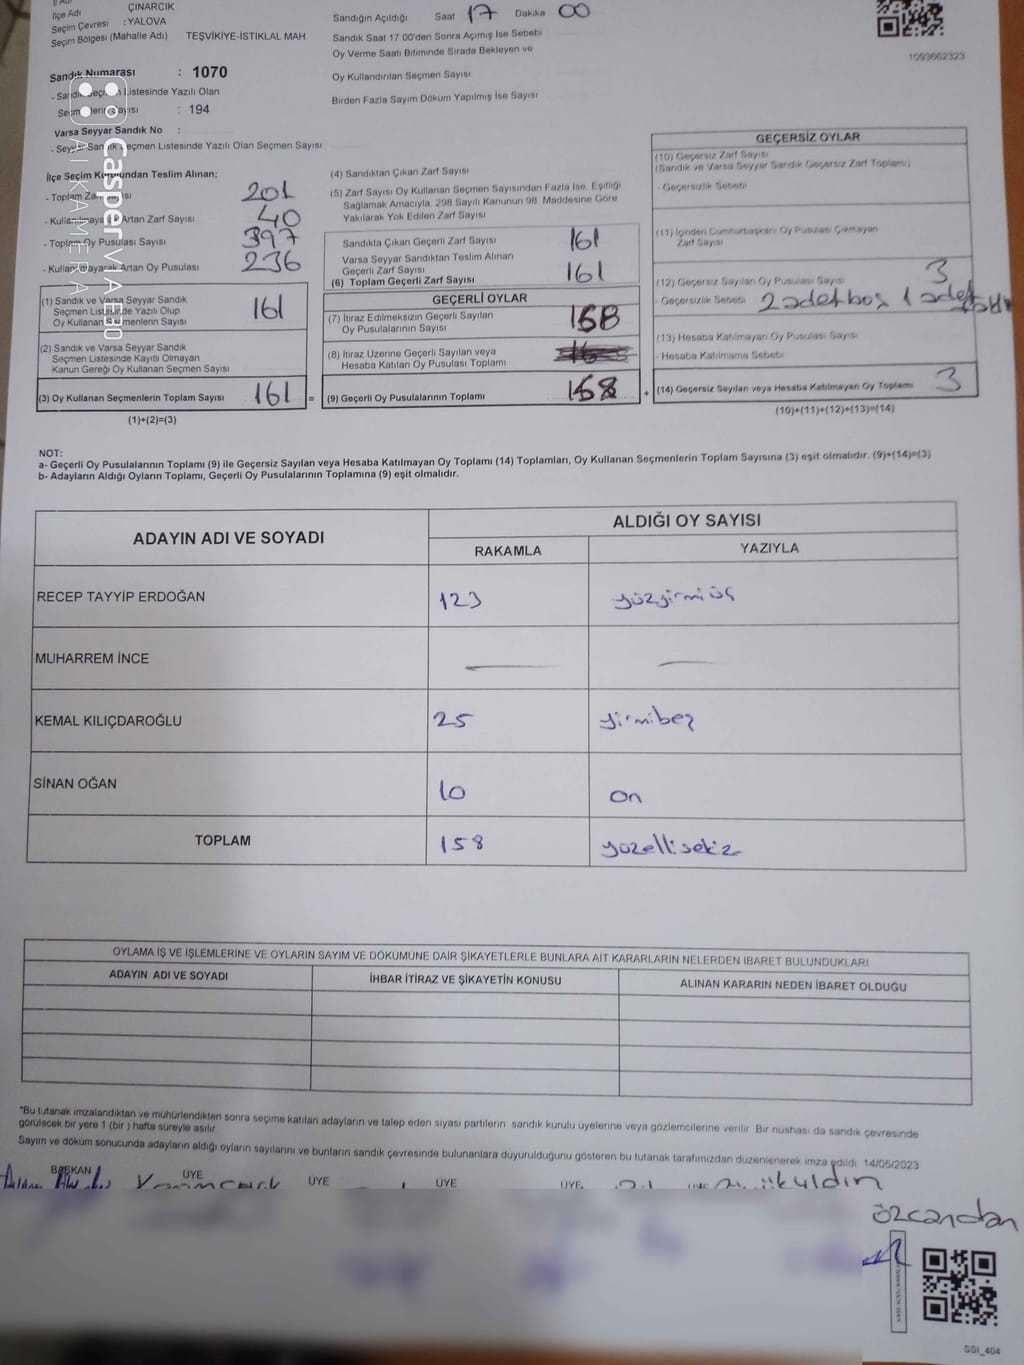 İlçe Adı ÇINARCIK
Seçim Çevresi : YALOVA
Seçim Bölgesi (Mahalle Adı) TEŞVİKİYE-İSTİKLAL MAH
Sandığın Açıldığı Saat 17 Dakika 00
Sandık Saat 17 00'den Sonra Açımış İse Sebebi
Oy Verme Saati Bitiminde Sırada Bekleyen ve
Oy Kullandırılan Seçmen Sayısı
Birden Fazla Sayım Döküm Yapılmış İse Sayısı
1093662323
Sandık Numarası : 1070
- Sandık Seçmen Listesinde Yazılı Olan
Seçmenlerin Sayısı : 194
Varsa Seyyar Sandık No :
- Seyyar Sandık Seçmen Listesinde Yazılı Olan Seçmen Sayısı
İlçe Seçim Kurulundan Teslim Alınan;
- Toplam Zarf Sayısı 201
- Kullanılmayarak Artan Zarf Sayısı 40
- Toplam Oy Pusulası Sayısı 397
- Kullanılmayarak Artan Oy Pusulası 236
(1) Sandık ve Varsa Seyyar Sandık
Seçmen Listesinde Yazılı Olup
Oy Kullanan Seçmenlerin Sayısı 161
(2) Sandık ve Varsa Seyyar Sandık
Seçmen Listesinde Kayıtlı Olmayan
Kanun Gereği Oy Kullanan Seçmen Sayısı
(3) Oy Kullanan Seçmenlerin Toplam Sayısı 161 =
(1)+(2)=(3)
(4) Sandıktan Çıkan Zarf Sayısı
(5) Zarf Sayısı Oy Kullanan Seçmen Sayısından Fazla İse, Eşitliği
Sağlamak Amacıyla, 298 Sayılı Kanunun 98. Maddesine Göre
Yakılarak Yok Edilen Zarf Sayısı
Sandıkta Çıkan Geçerli Zarf Sayısı 161
Varsa Seyyar Sandıktan Teslim Alınan
Geçerli Zarf Sayısı
(6) Toplam Geçerli Zarf Sayısı 161
GEÇERLİ OYLAR
(7) İtiraz Edilmeksizin Geçerli Sayılan
Oy Pusulalarının Sayısı 158
(8) İtiraz Üzerine Geçerli Sayılan veya
Hesaba Katılan Oy Pusulası Toplamı
(9) Geçerli Oy Pusulalarının Toplamı 158 +
GEÇERSİZ OYLAR
(10) Geçersiz Zarf Sayısı
(Sandık ve Varsa Seyyar Sandık Geçersiz Zarf Toplamı)
- Geçersizlik Sebebi
(11) İçinden Cumhurbaşkanı Oy Pusulası Çıkmayan
Zarf Sayısı
(12) Geçersiz Sayılan Oy Pusulası Sayısı 3
- Geçersizlik Sebebi 2 adet boş 1 adet
(13) Hesaba Katılmayan Oy Pusulası Sayısı
- Hesaba Katılmama Sebebi
(14) Geçersiz Sayılan veya Hesaba Katılmayan Oy Toplamı 3
(10)+(11)+(12)+(13)=(14)
NOT:
a- Geçerli Oy Pusulalarının Toplamı (9) ile Geçersiz Sayılan veya Hesaba Katılmayan Oy Toplamı (14) Toplamları, Oy Kullanan Seçmenlerin Toplam Sayısına (3) eşit olmalıdır. (9)+(14)=(3)
b- Adayların Aldığı Oyların Toplamı, Geçerli Oy Pusulalarının Toplamına (9) eşit olmalıdır.
ADAYIN ADI VE SOYADI
ALDIĞI OY SAYISI
RAKAMLA YAZIYLA
RECEP TAYYİP ERDOĞAN 123 yüzyirmiüç
MUHARREM İNCE — —
KEMAL KILIÇDAROĞLU 25 yirmibeş
SİNAN OĞAN 10 on
TOPLAM 158 yüzellisekiz
OYLAMA İŞ VE İŞLEMLERİNE VE OYLARIN SAYIM VE DÖKÜMÜNE DAİR ŞİKAYETLERLE BUNLARA AİT KARARLARIN NELERDEN İBARET BULUNDUKLARI
ADAYIN ADI VE SOYADI İHBAR İTİRAZ VE ŞİKAYETİN KONUSU ALINAN KARARIN NEDEN İBARET OLDUĞU
*Bu tutanak imzalandıktan ve mühürlendikten sonra seçime katılan adayların ve talep eden siyasi partilerin sandık kurulu üyelerine veya gözlemcilerine verilir. Bir nüshası da sandık çevresinde
görülecek bir yere 1 (bir) hafta süreyle asılır.
Sayım ve döküm sonucunda adayların aldığı oyların sayılarını ve bunların sandık çevresinde bulunanlara duyurulduğunu gösteren bu tutanak tarafımızdan düzenlenerek imza edildi. 14/05/2023
BAŞKAN ÜYE ÜYE ÜYE ÜYE
özcandan
SSİ_404
Casper VIA E30
AI KAMERA